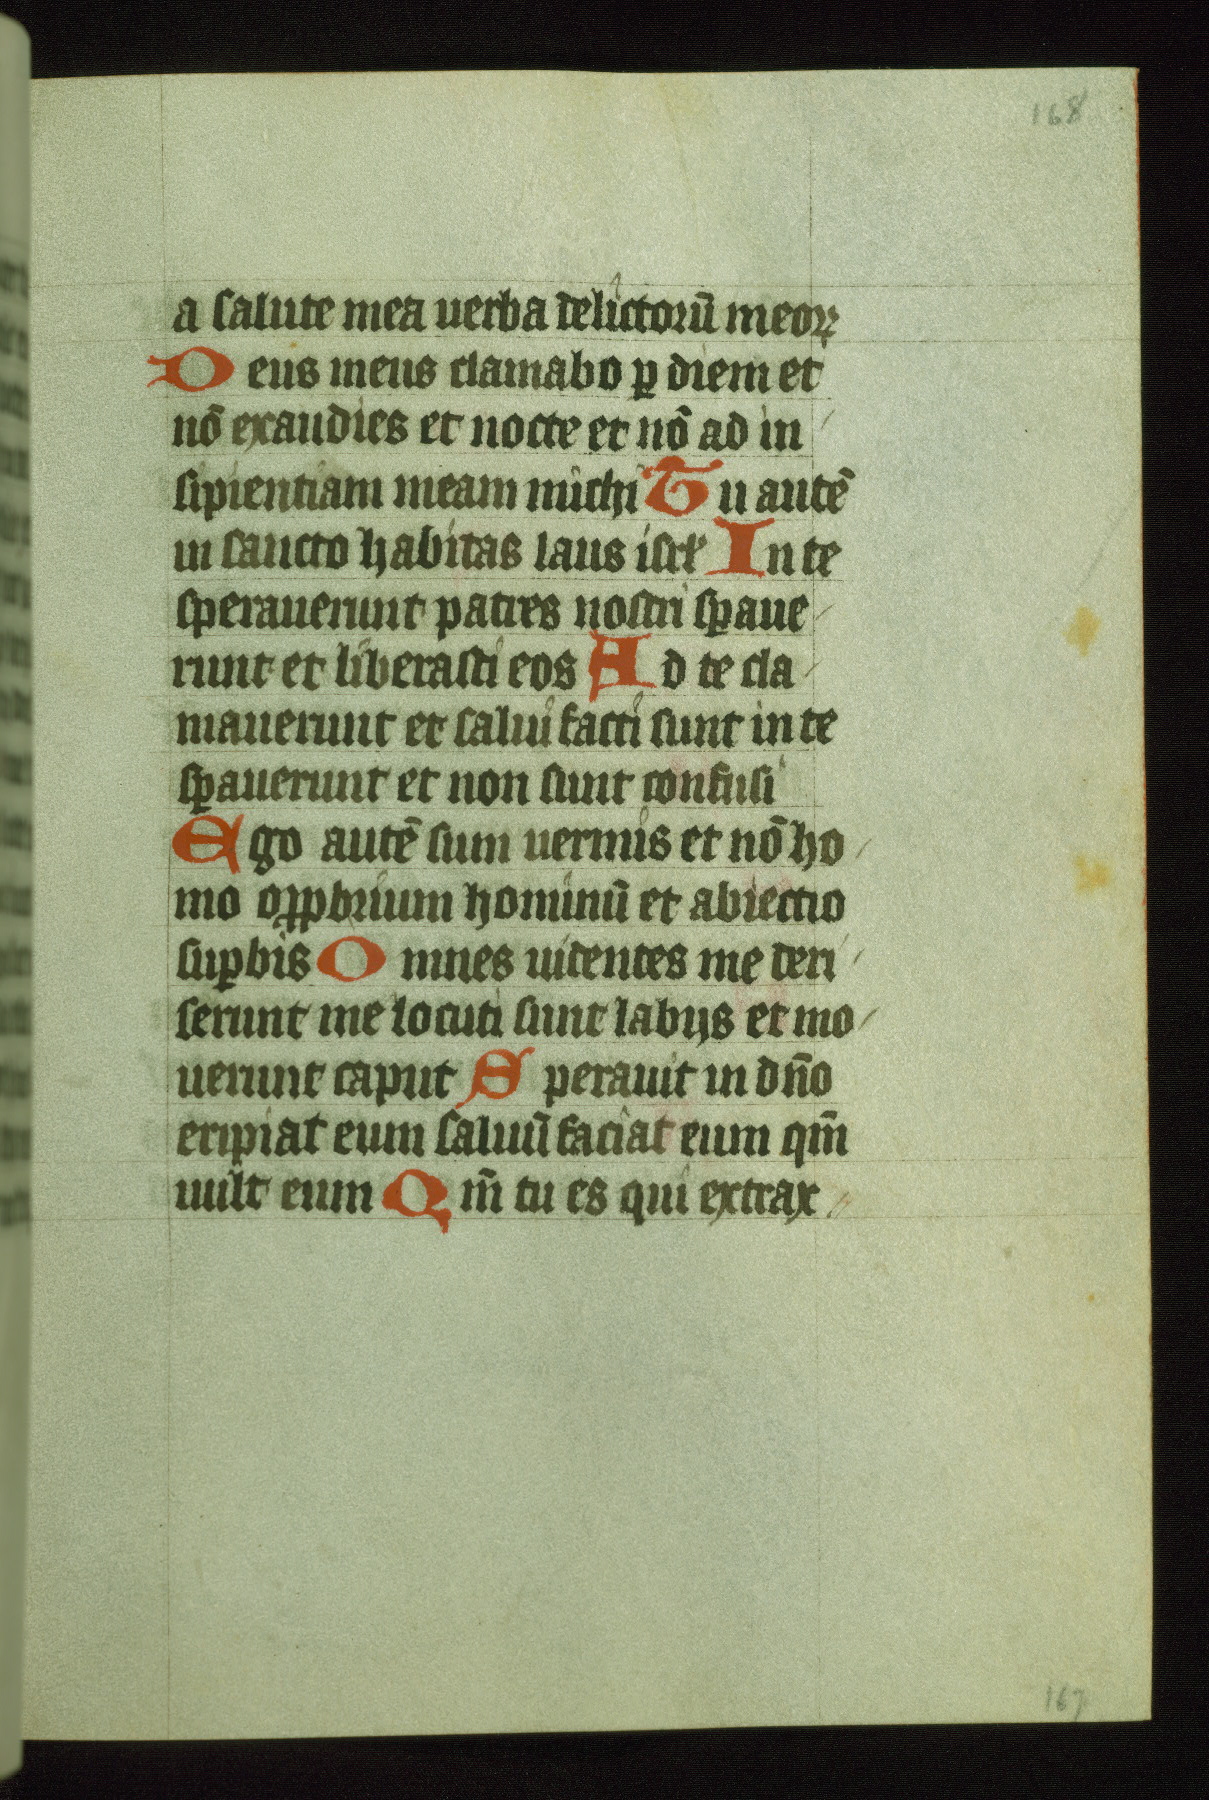 168
a salute mea uerba delictorū meoꝝ
Deus meus clamabo ꝑ diem et
nō exaudies et nocte et nō ad in
sipientiam meam michi Tu autē
in sancto habitas laus isrl̄ In te
sperauerunt patres nostri sꝑaue
runt et liberasti eos Ad te cla
mauerunt et salui facti sunt in te
sꝑauerunt et non sunt confusi
Ego autē sum uermis et nō ho
mo oꝓpbrium hominū et abiectio
suꝑbis Omnes uidentes me deri
serunt me locuti sunt labijs et mo
uerunt caput Sperauit in dn̄o
eripiat eum saluū faciat eum qm̄
uult eum Qm̄ tu es qui extrax
167